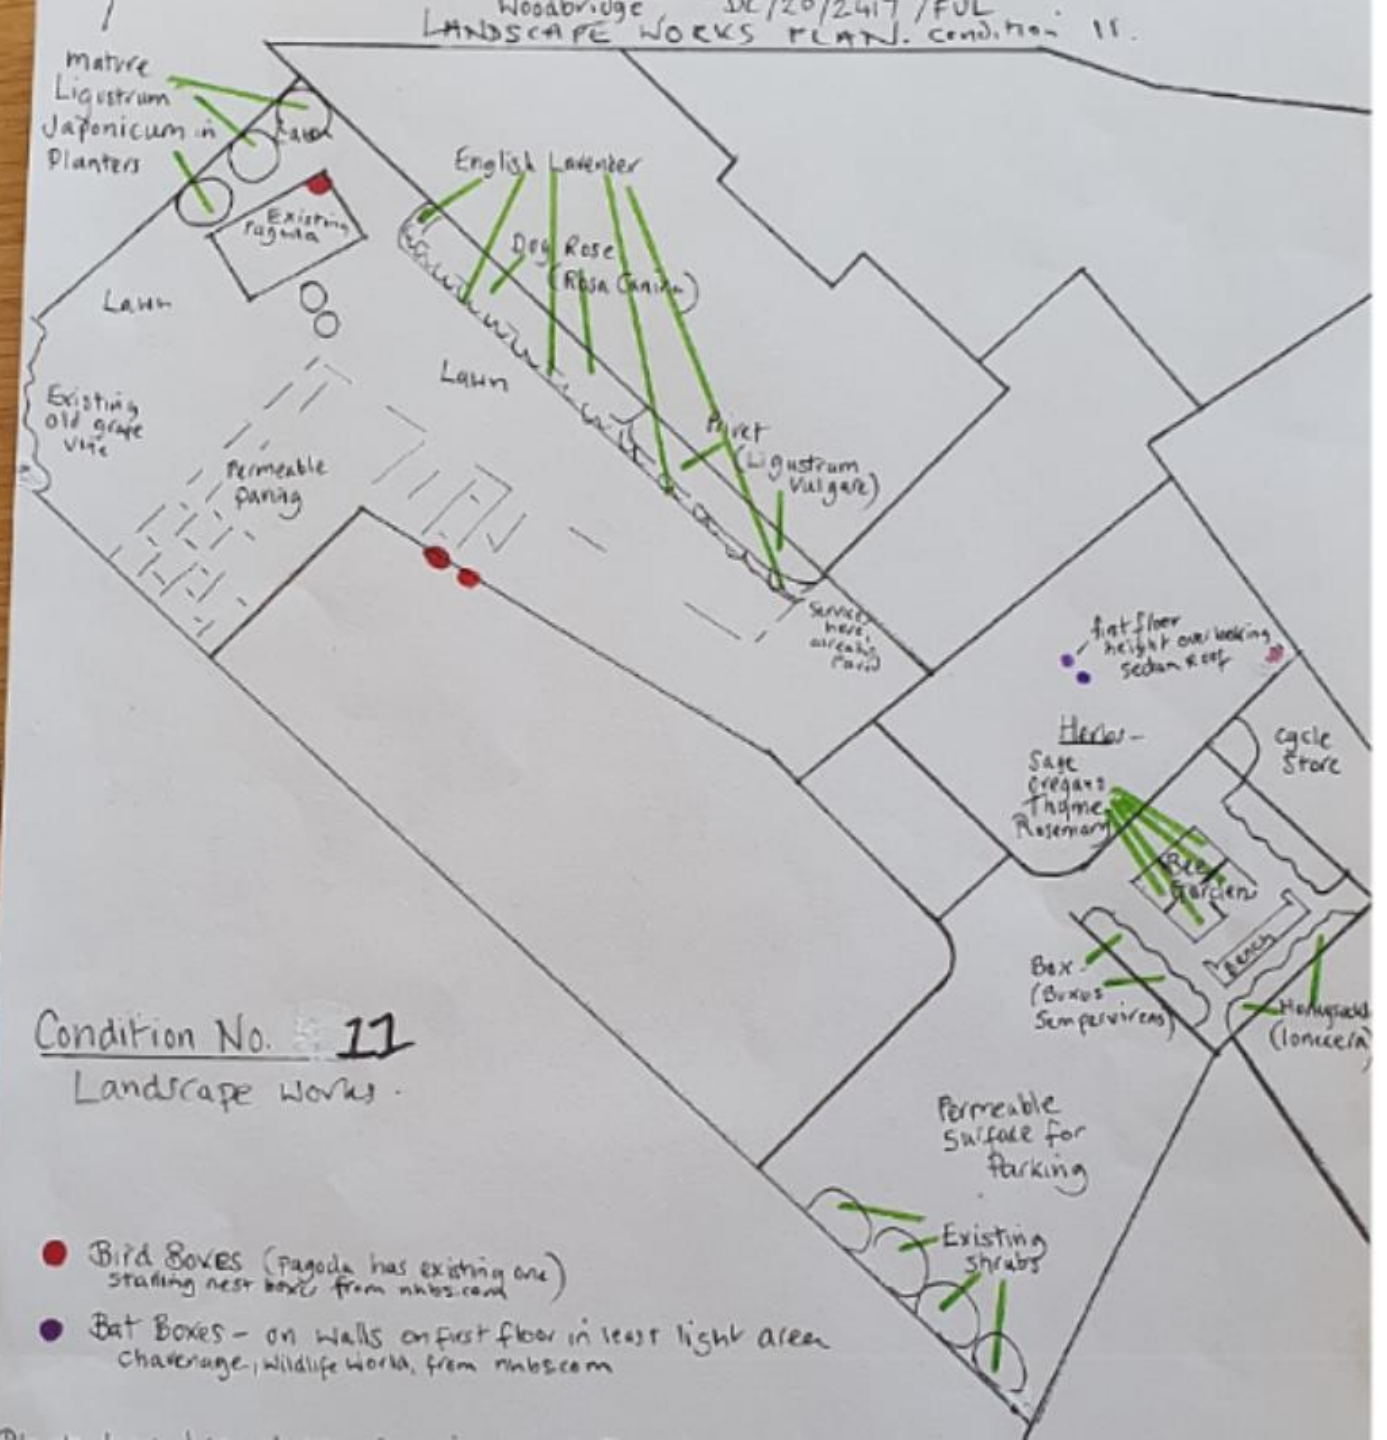 Woodbridge DC/20/2417/FUL
LANDSCAPE WORKS PLAN. Condition 11.
mature
Ligustrum
Japonicum in
Planters
Lawn
English Lavender
Existing
Pagoda
Dog Rose
(Rosa Canina)
Lawn
Lawn
Existing
old grape
vine
Permeable
Paving
Privet
(Ligustrum
Vulgare)
Services
here,
already
Paved
first floor
height overlooking
sedum roof
Herbs-
Sage
Oregano
Thyme
Rosemary
Cycle
Store
Bee
Garden
Bench
Box
(Buxus
Sempervirens)
Honeysuckle
(lonicera)
Condition No. 11
Landscape works.
Permeable
Surface for
Parking
Existing
shrubs
Bird Boxes (pagoda has existing one)
Starling nest boxes from nhbs.com
Bat Boxes - on walls on first floor in least light area
Chavenage, Wildlife World, from nhbs.com